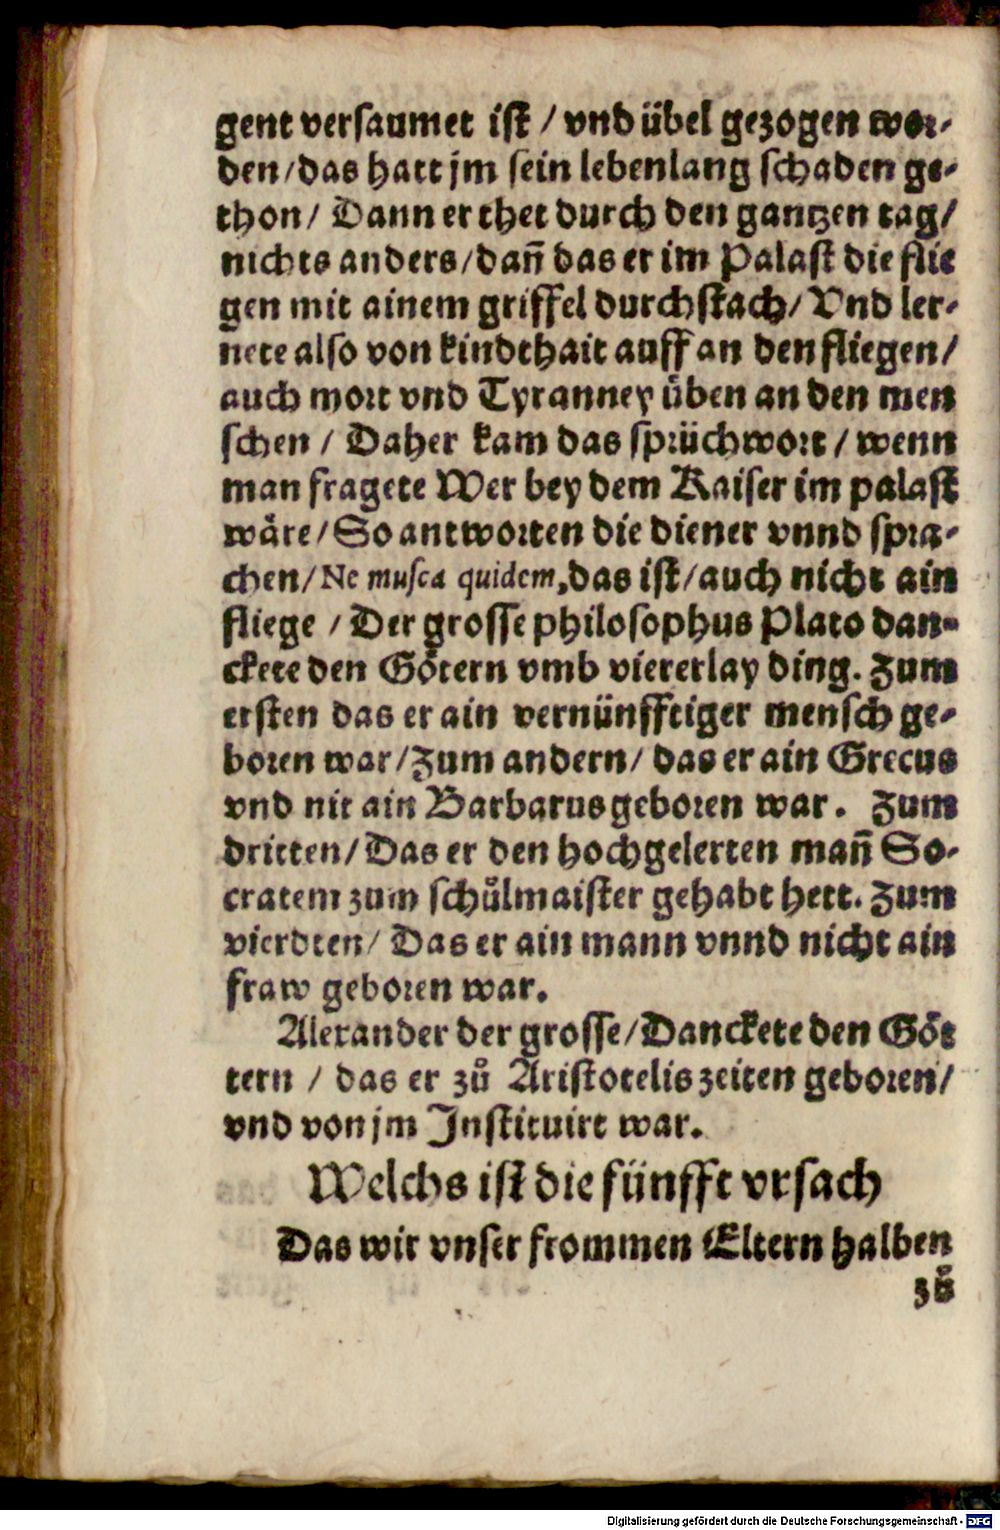 gent versaumet ist / vnd übel gezogen wor-
den / das hatt jm sein lebenlang schaden ge-
thon / Dann er thet durch den gantzen tag /
nichts anders / dañ das er im Palast die flie
gen mit ainem griffel durchstach / Vnd ler-
nete also von kindthait auff an den fliegen /
auch mort vnd Tyranney üben an den men
schen / Daher kam das sprüchwort / wenn
man fragete Wer bey dem Kaiser im palast
wäre / So antworten die diener vnnd spra-
chen / Ne musca quidem, das ist / auch nicht ain
fliege / Der grosse philosophus Plato dan-
ckete den Götern vmb viererlay ding. Zum
ersten das er ain vernünfftiger mensch ge-
boren war / Zum andern / das er ain Grecus
vnd nit ain Barbarus geboren war. Zum
dritten / Das er den hochgelerten mañ So-
cratem zum schůlmaister gehabt hett. Zum
vierdten / Das er ain mann vnnd nicht ain
fraw geboren war.
Alexander der grosse / Danckete den Göt
tern / das er zů Aristotelis zeiten geboren /
vnd von jm Instituirt war.
Welchs ist die fünfft vrsach
Das wir vnser frommen Eltern halben
zů
Digitalisierung gefördert durch die Deutsche Forschungsgemeinschaft - DFG